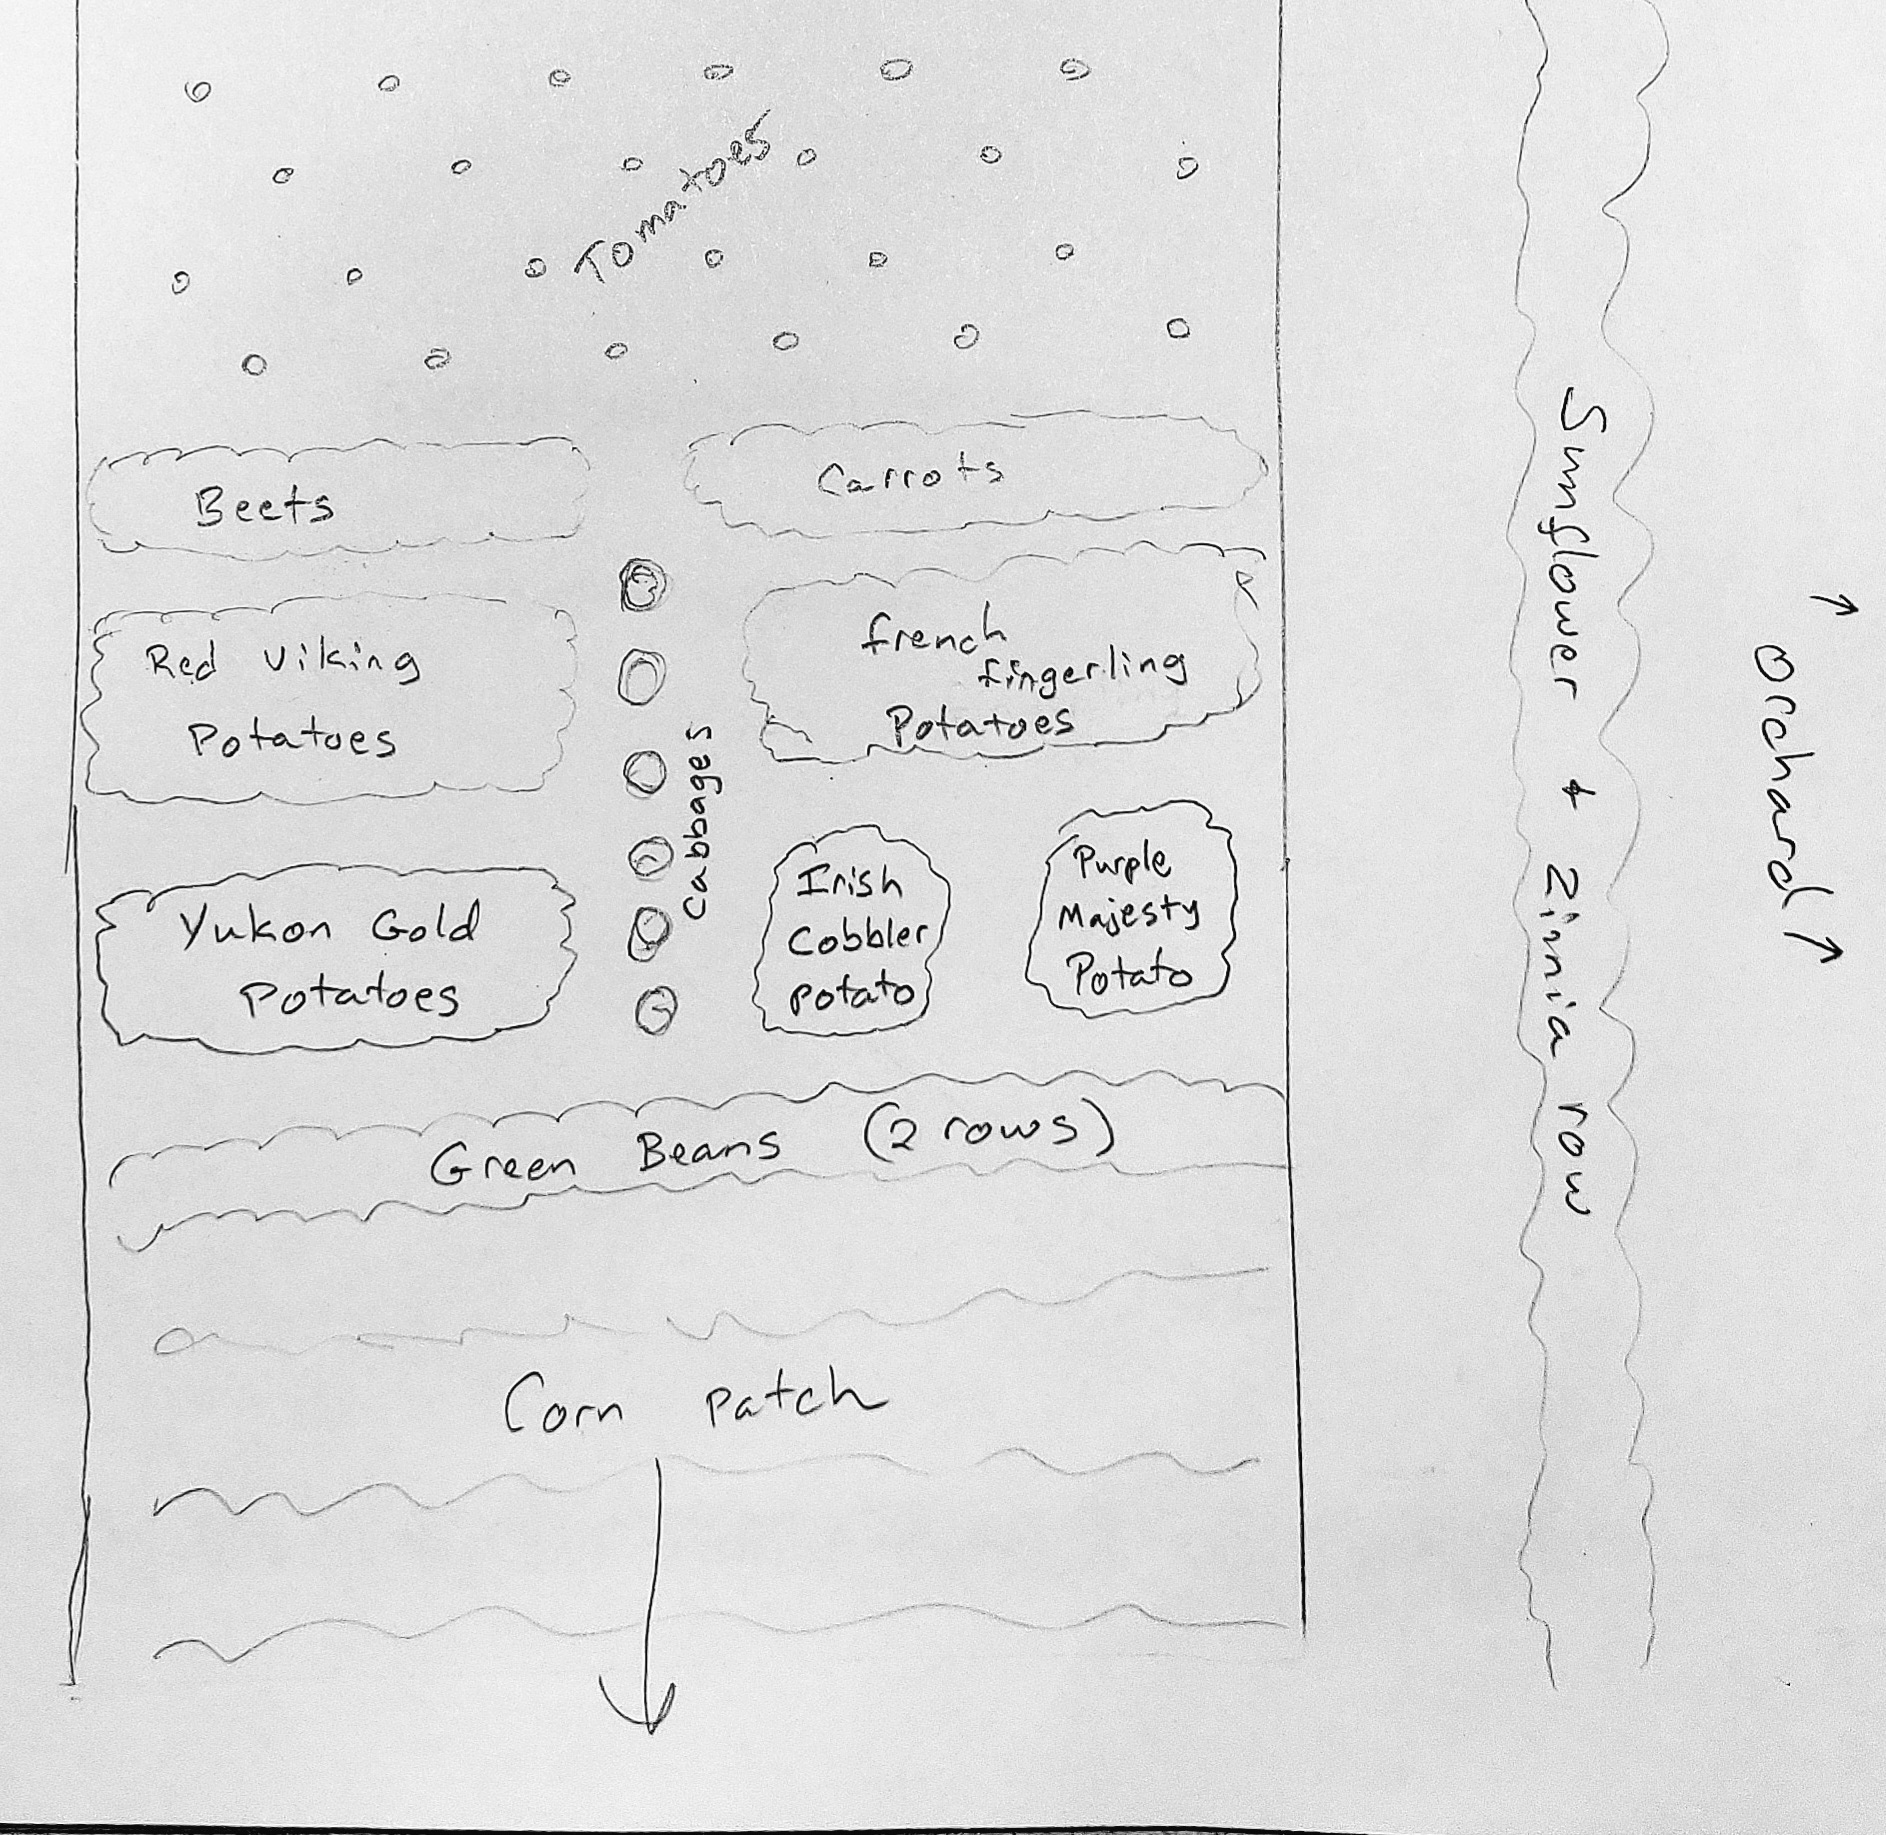 Tomatoes
Beets
Carrots
Red Viking
Potatoes
french
fingerling
Potatoes
Cabbages
Yukon Gold
Potatoes
Irish
Cobbler
potato
Purple
Majesty
Potato
Green Beans (2 rows)
Corn patch
Sunflower + Zinnia row
↑ Orchard ↑